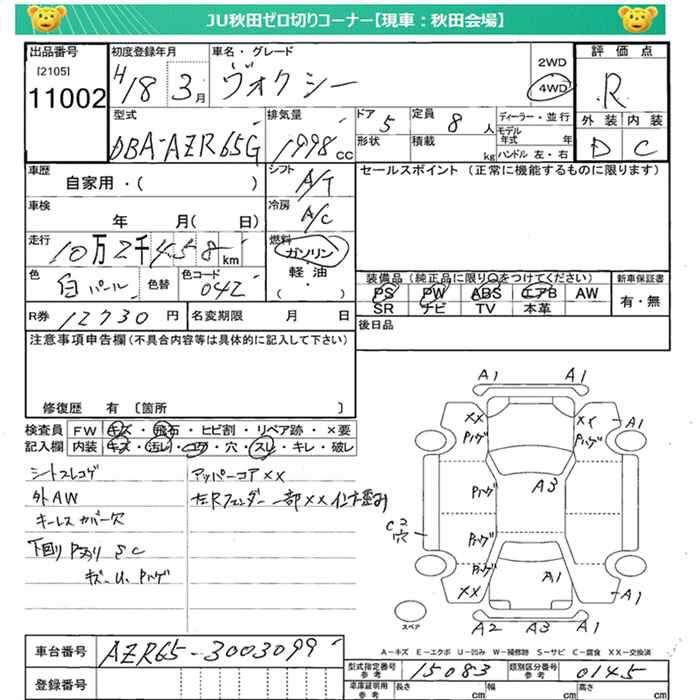 JU秋田ゼロ切りコーナー【現車：秋田会場】
出品番号
[2105]
11002
初度登録年月
H18 3月
車名・グレード
ヴォクシー
2WD
4WD
評価点
R
外装 内装
D C
型式
DBA-AZR65G
排気量
1998 cc
ドア 5
形状
定員 8 人
積載 kg
ディーラー・並行
モデル年式 年
ハンドル 左・右
車歴
自家用・( )
シフト
A/T
セールスポイント (正常に機能するものに限ります)
車検
年 月( 日)
冷房
A/C
走行
10万2千458km
燃料
ガソリン
軽油
・
( )
色
白パール
色替
色コード
042
装備品 (純正品に限り○をつけてください)
PS PW ABS エアB AW
SR ナビ TV 本革
新車保証書
有・無
R券 12730円
名変期限 月 日
後日品
注意事項申告欄(不具合内容等は具体的に記入して下さい)
修復歴 有 〔箇所 〕
検査員
記入欄
FW キズ・飛石・ヒビ割・リペア跡・×要
内装 キズ・汚レ・コゲ・穴・スレ・キレ・破レ
シートスレコゲ
外AW
キーレスカバー欠
下回りPサリSC
キズ・U、Pハゲ
アッパーコアXX
左Rフェンダー一部XXインナー歪み
A1 A1
XX
Pハゲ
XX
Pハゲ
A1
Pハゲ
A3
C2
穴
Pハゲ
Pハゲ
XX
A1
A1
A2 A3 A1
スペア
A－キズ E－エクボ U－凹み W－補修跡 S－サビ C－腐食 XX－交換済
車台番号
AZR65-3003099
登録番号
型式指定番号
参考
15083
類別区分番号
参考
0145
車庫証明用
参考
長さ cm
幅 cm
高さ cm